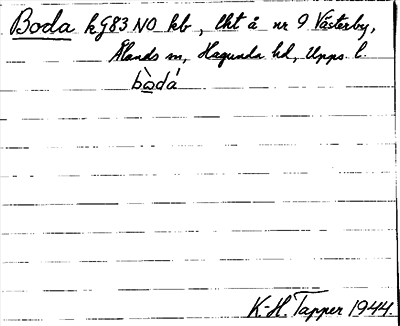 Boda kG83 NO kb, lht å nr 9 Västerby,
Ålands sn, Hagunda hd, Upps. l.
bò̱dá
K-H. Tapper 1944.